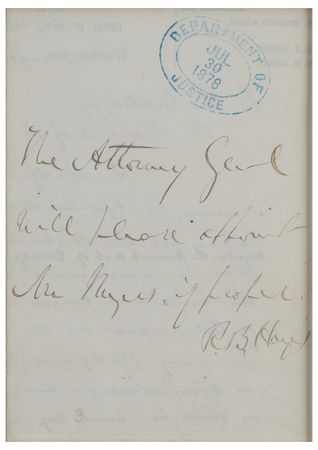 DEPARTMENT OF
JUL
30
1878
JUSTICE
The Attorney Genl
will please appoint
Mr Myers, if proper.
R. B. Hayes